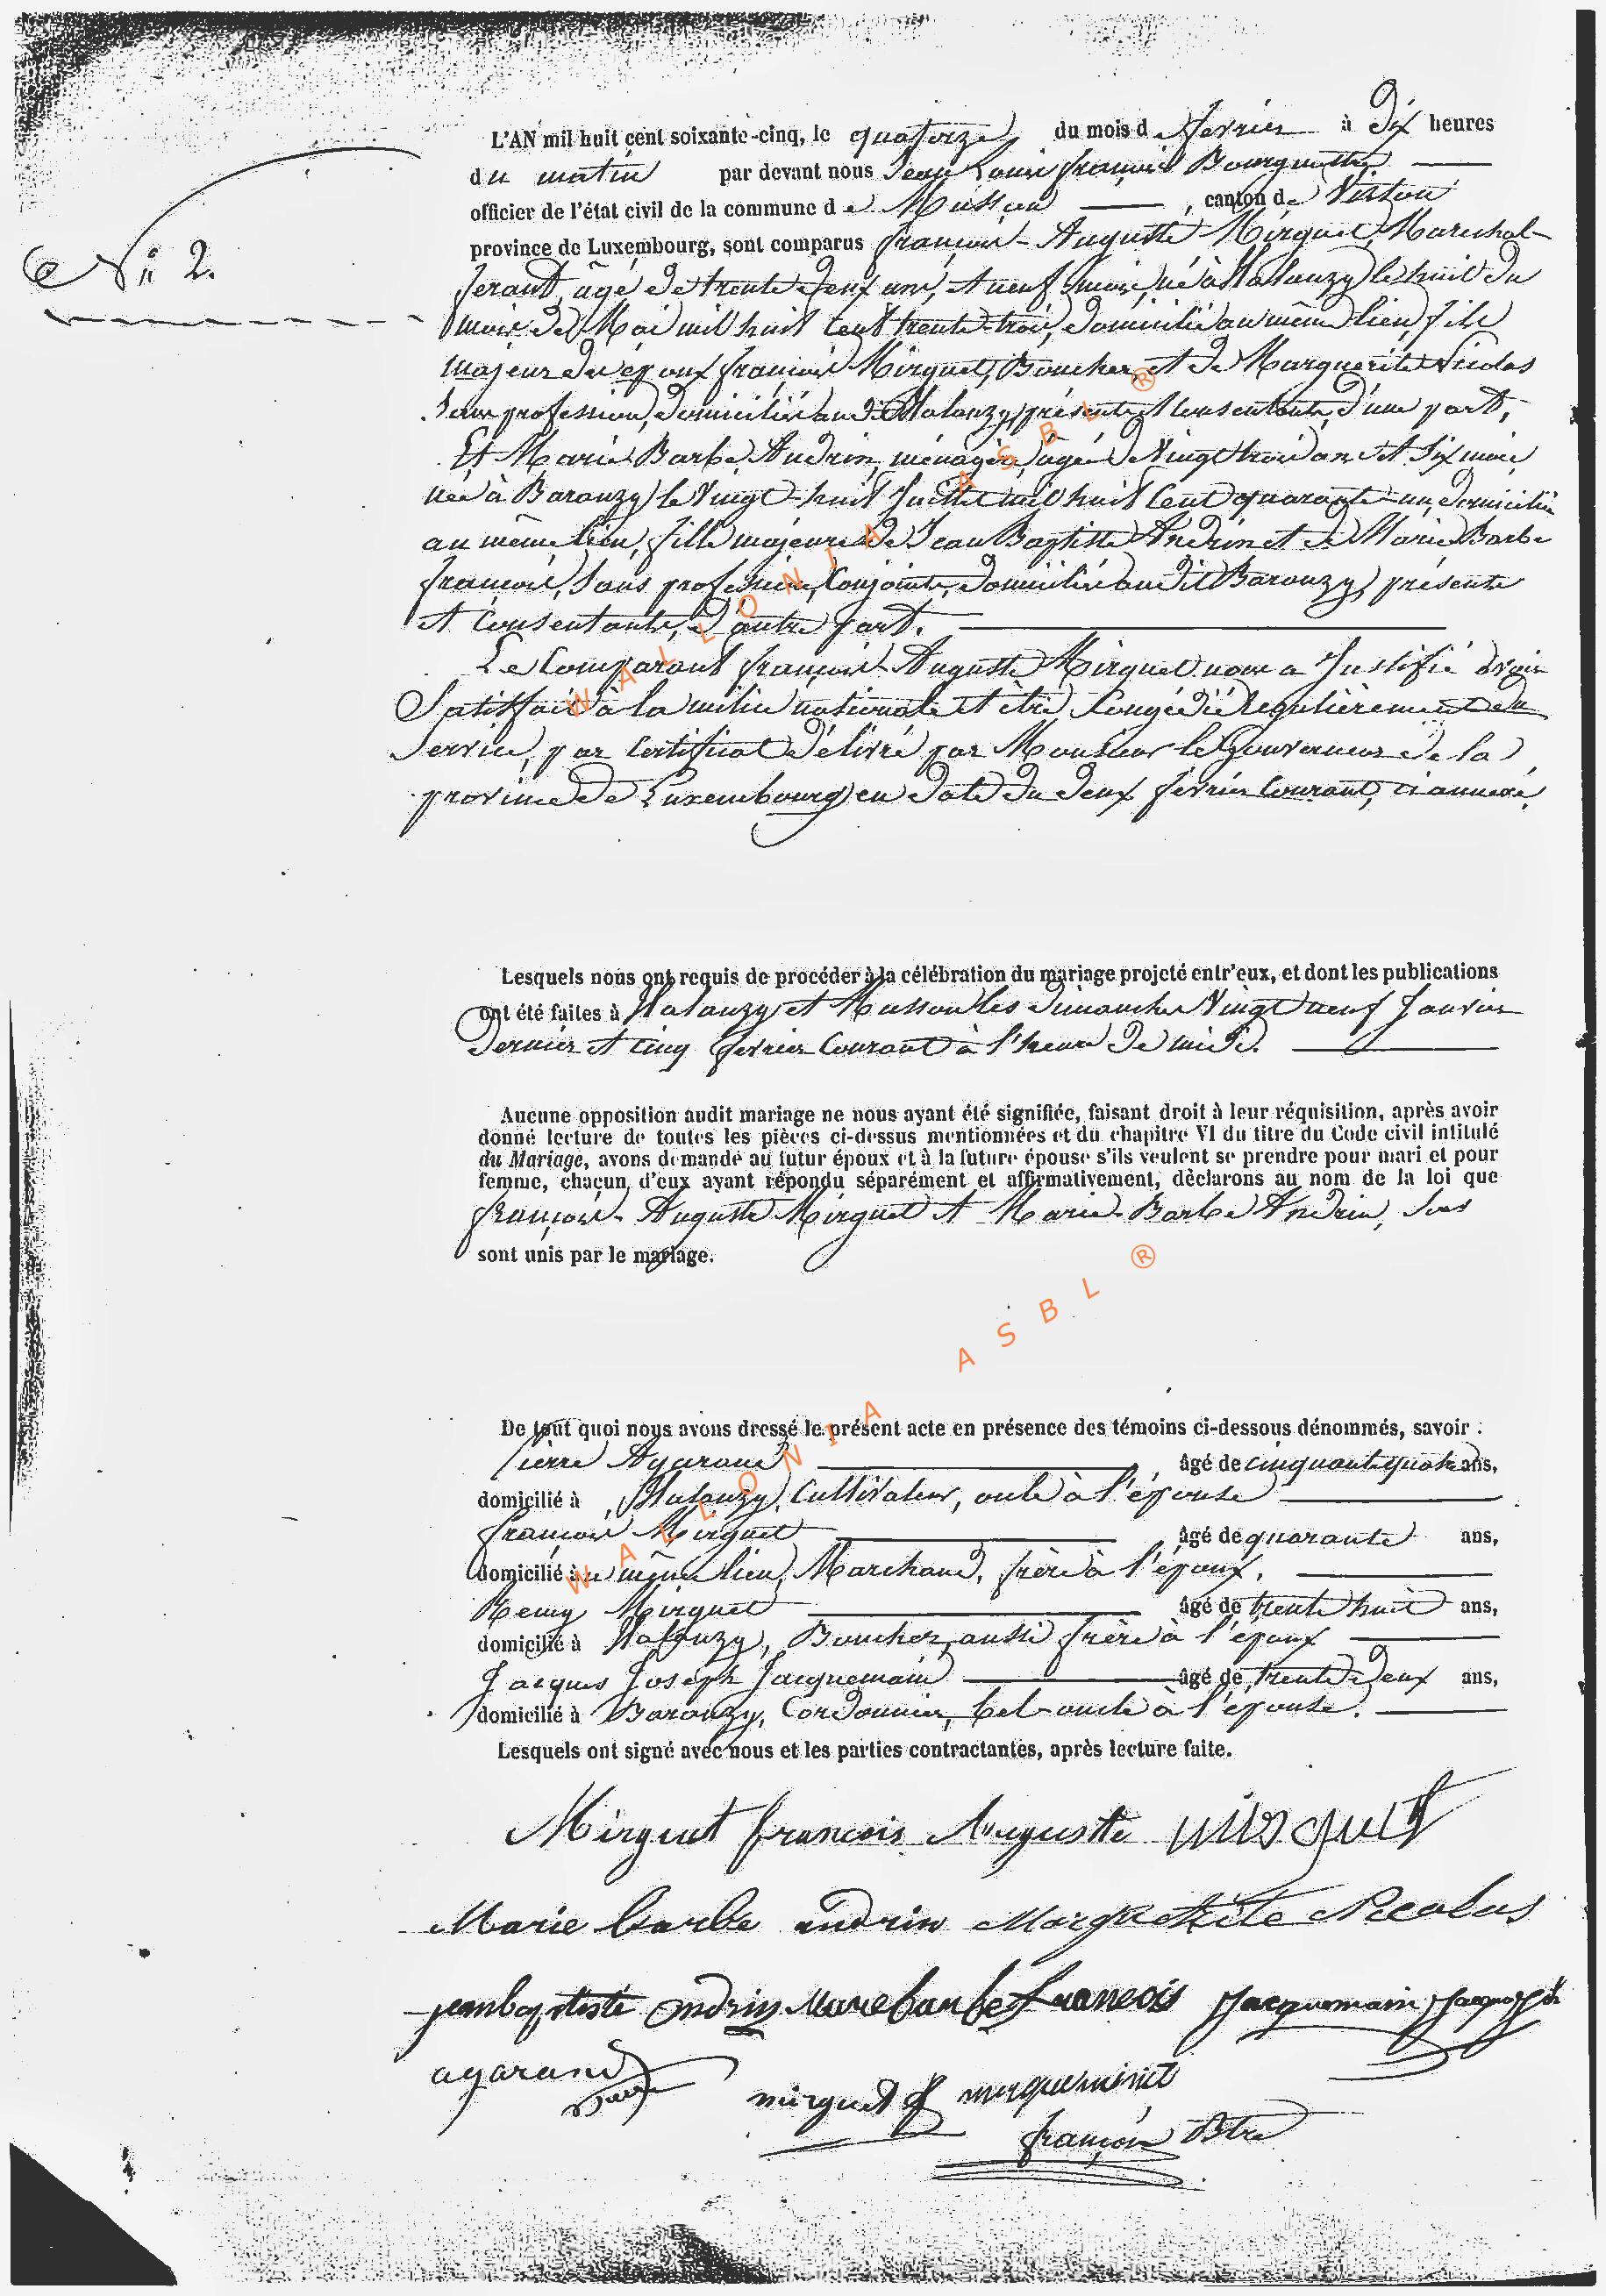 L'AN mil huit cent soixante-cinq, le quatorze du mois de fevrier à Dix heures
du matin par devant nous Jean Louis françois Bourguettin
officier de l'état civil de la commune de Musson, canton de Virton
province de Luxembourg, sont comparus françois-Auguste Mirguet, Marechal-
ferant, âgé de trente deux ans, et neuf mois, né à Halanzy le huit du
mois de Mai mil huit cent trente-trois, domicilié au même lieu, fils
majeur des époux françois Mirguet, Boucher, et de Marguerite Nicolas
sans profession, domiciliés au dit Halanzy, présents et consentants, d'une part,
Et Marie Barbe Andrin, ménagère, âgée de Vingt trois ans et Six mois
née à Baranzy le Vingt-huit Juillet mil huit Cent quarante-un, domiciliée
au même lieu, fille majeure de Jean Baptiste Andrin et de Marie Barbe
françois, Sans profession, Conjoints, domiciliés au dit Baranzy, présents
et Consentants, d'autre part.
Le Comparant françois-Auguste Mirguet nous a Justifié avoir
Satisfait à la milice nationale et être Congédié régulièrement du
Service, par Certificat délivré par Monsieur le Gouverneur de la
province de Luxembourg en date du deux février Courant, ci annexé.
N° 2.
Lesquels nous ont requis de procéder à la célébration du mariage projeté entr'eux, et dont les publications
ont été faites à Halanzy et Musson les dimanches Vingt neuf Janvier
dernier et cinq fevrier Courant à l'heure de midi.
Aucune opposition audit mariage ne nous ayant été signifiée, faisant droit à leur réquisition, après avoir
donné lecture de toutes les pièces ci-dessus mentionnées et du chapitre VI du titre du Code civil intitulé
du Mariage, avons demandé au futur époux et à la future épouse s'ils veulent se prendre pour mari et pour
femme, chacun d'eux ayant répondu séparément et affirmativement, déclarons au nom de la loi que
françois-Auguste Mirguet et Marie-Barbe Andrin,
sont unis par le mariage.
De tout quoi nous avons dressé le présent acte en présence des témoins ci-dessous dénommés, savoir :
Pierre Agarand âgé de cinquante quatre ans,
domicilié à Halanzy, Cultivateur, oncle à l'épouse
françois Mirguet âgé de quarante ans,
domicilié au même lieu, Marchand, frère à l'époux.
Remy Mirguet âgé de trente huit ans,
domicilié à Halanzy, Boucher, aussi frère à l'époux
Jacques Joseph Jacquemain âgé de trente deux ans,
domicilié à Baranzy, Cordonnier, bel-oncle à l'épouse.
Lesquels ont signé avec nous et les parties contractantes, après lecture faite.
Mirguet francois Auguste mirguet
Marie barbe andrin Marguerite Nicolas
jean baptiste andrin Marie barbe francois Jacquemain
agarand
mirguet f
françois
WALLONIA ASBL ®
WALLONIA ASBL ®